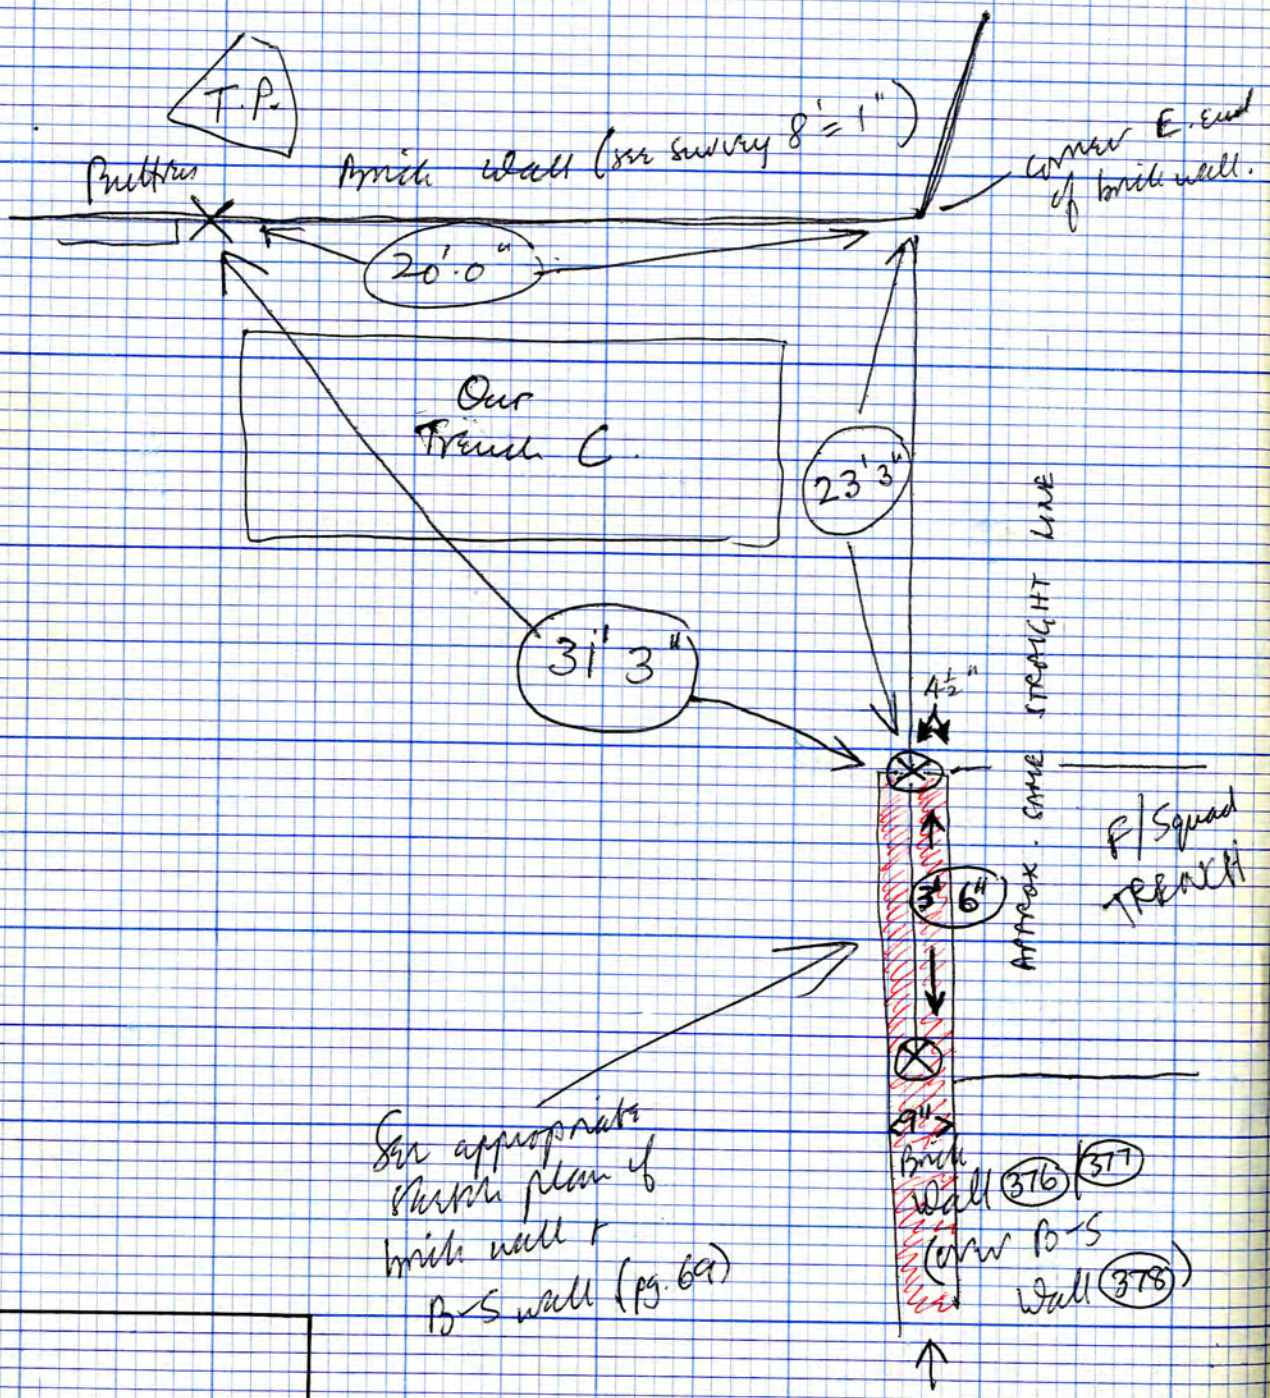 T.P.
Buttress
Brick Wall (see survey 8' = 1")
corner E. end
of brick wall.
20'.0"
Our
Trench C.
23'3"
31' 3"
4½"
APPROX. SAME STRAIGHT LINE
F/Squad
TRENCH
3' 6"
9"
Brick
Wall 376/377
(over B-S
Wall 378)
See appropriate
sketch plan of
brick wall +
B-S wall (pg. 69)